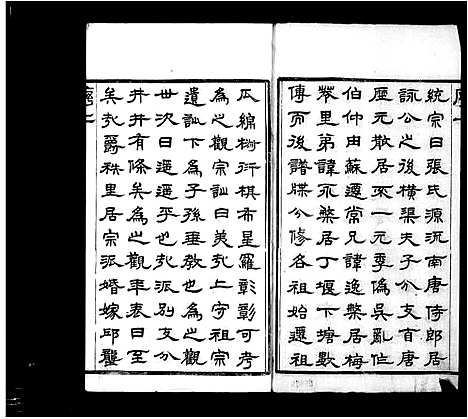 統宗曰張氏源流南唐侍郎居
詠公之後橫渠夫子分支自唐
歷元散居不一元季偽吳亂作
伯仲由蘇遷常兄諱逸槃居梅
岑里弟諱示槃居丁堰下塘數
傳而後譜牒公修各祖始遷祖
瓜綿樹衍棋布星羅彰彰可考
為之觀宗訓曰美哉上守祖宗
遺訓下為子孫垂教也為之觀
世次曰遞遞乎也哉別支分
井井有條矣為之觀年表曰至
矣哉爵秩里居宗派婚嫁邱壟